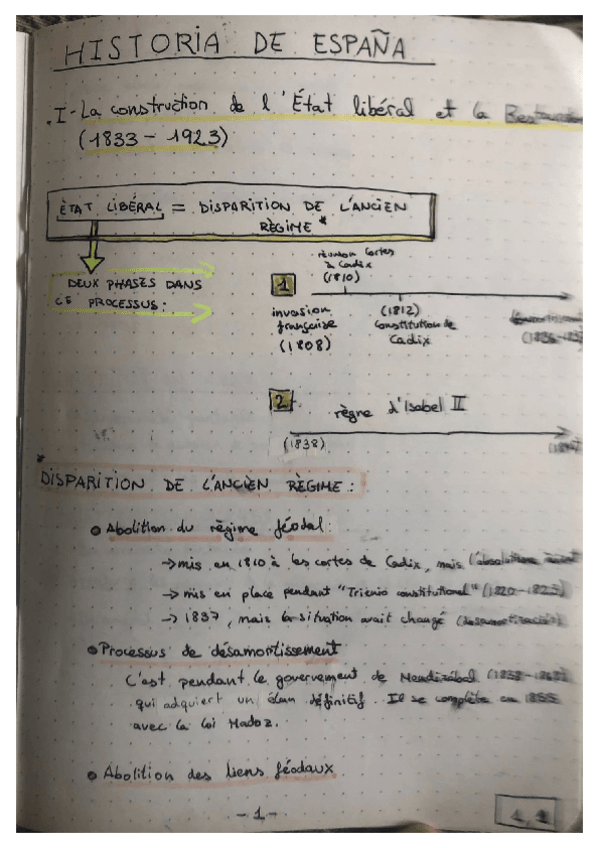 HISTORIA DE ESPAÑA
I - La construction de l'État libéral et la
(1833 - 1923)
ÈTAT LIBÉRAL = DISPARITION DE L'ANCIEN
RÈGIME *
DEUX PHASES DANS
CE PROCESSUS:
1
réunion Cortes
à Cadix
(1810)
invasion
française
(1808)
(1812)
Constitution de
Cadix
2
règne d'Isabel II
(1838)
*
DISPARITION DE L'ANCIEN RÈGIME:
Abolition du règime féodal:
→ mis en 1810 à les cortes de Cadix, mais
→ mis en place pendant "Trienio constitutional" (1820-1823)
→ 1837, mais la situation avait changé
Processus de désamortissement
C'est pendant le gouvernement de Mendizábal
qui adquiert un élan définitif. Il se complète en 1855
avec la loi Madoz.
Abolition des liens féodaux
- 1 -